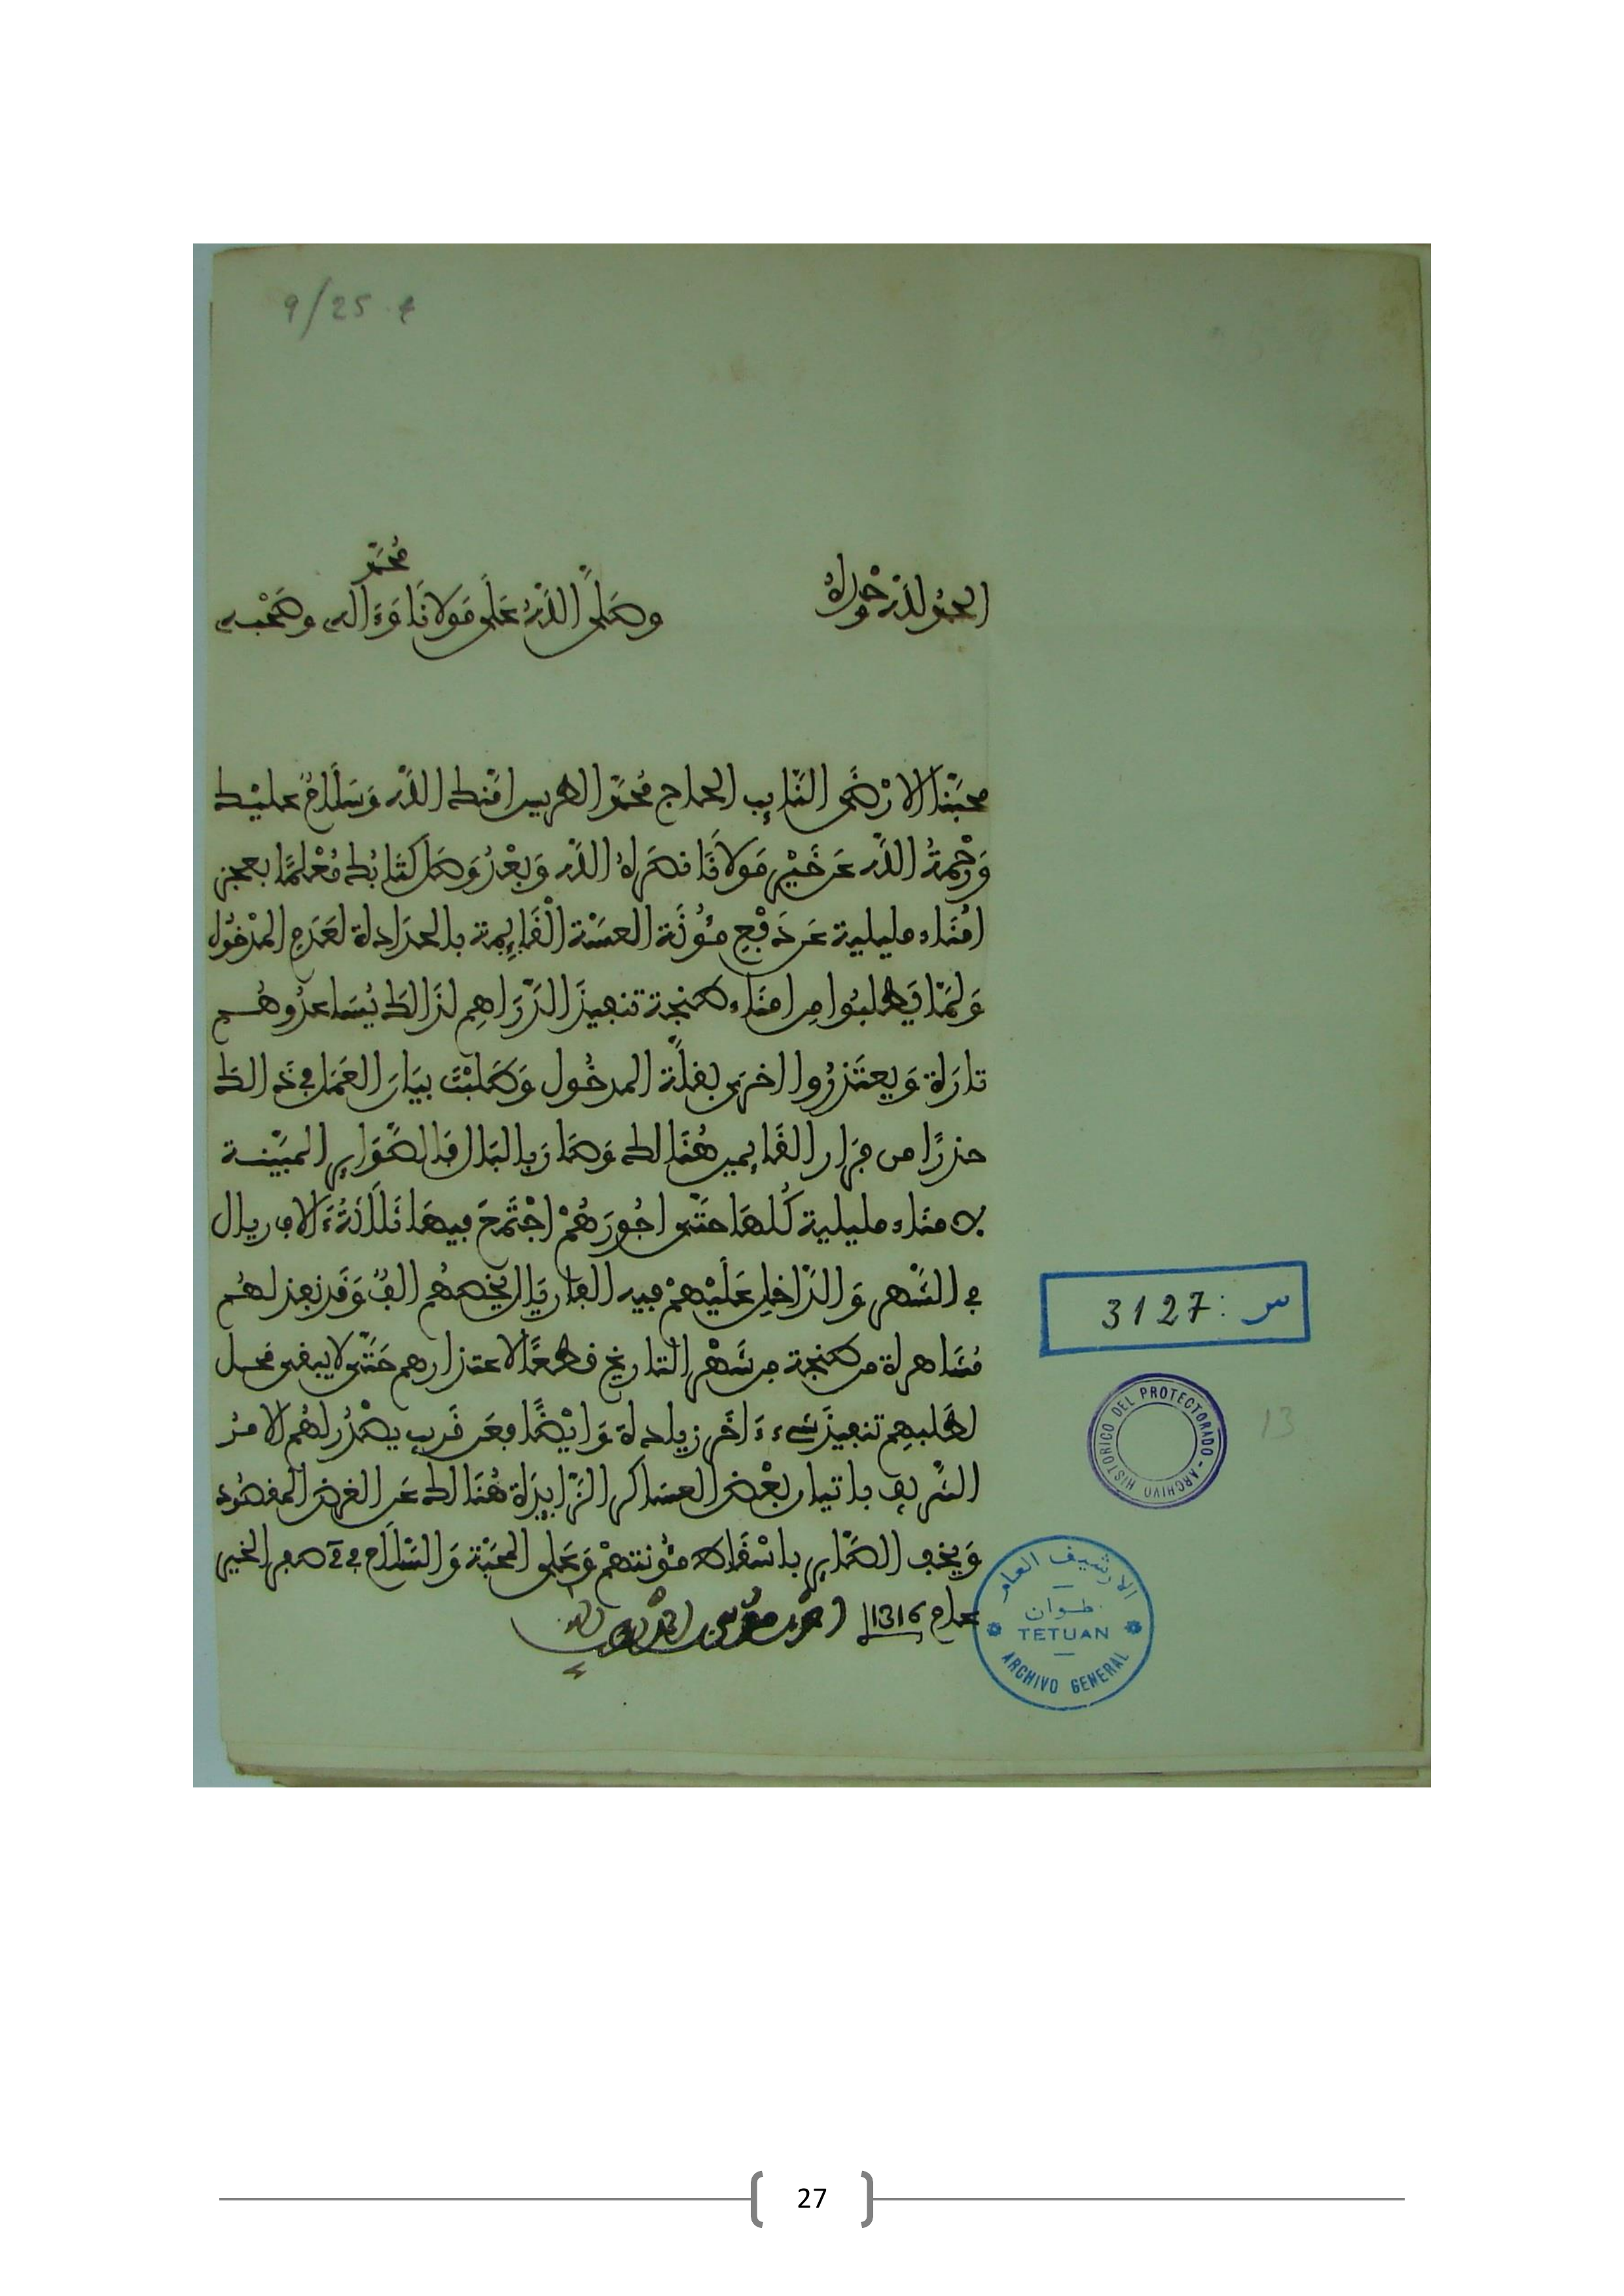 9/25
الحمد لله وحده
وصلى الله على مولانا محمد وءاله وصحبه
محبنا الارضى النايب الحاج محمد الطريس امنك الله وسلام عليك
ورحمة الله عن خير مولانا نصره الله وبعد وصل كتابك معلما بعجز
امناء مليلية عن دفع مئونة العسة القايمة بالحدادة لعدم المدخول
ولما يطلبوا من امناء طنجة تنفيذ الدراهم لذالك يساعدوهم
تارة ويعتذروا اخرى بقلة المدخول وطلبت بيان العمل في ذالك
حذرا من فرار القايمين هنالك وصار بالبال فالصواير المبينة
لامناء مليلية كلها حتى اجورهم اجتمع فيها ثلاثة ءالاف ريال
في الشهر والداخل عليهم فيه الفا ريال يخصهم الف وقد نفذ لهم
مشاهرة من طنجة من شهر التاريخ قطعا لاعتذارهم حتى لا يبقى محل
لطلبهم تنفيذ شيء ءاخر زيادة وايضا فعن قريب يصدر لهم الامر
الشريف باتيان بعض العساكر الزايدة هنالك عن الغرض المقصود
ويخف الصاير باسقاط مئونتهم وعلى المحبة والسلام في صفر الخير
عام 1316
س : 3127
ARCHIVO HISTORICO DEL PROTECTORADO
13
الارشيف العام
تطوان
TETUAN
ARCHIVO GENERAL
27